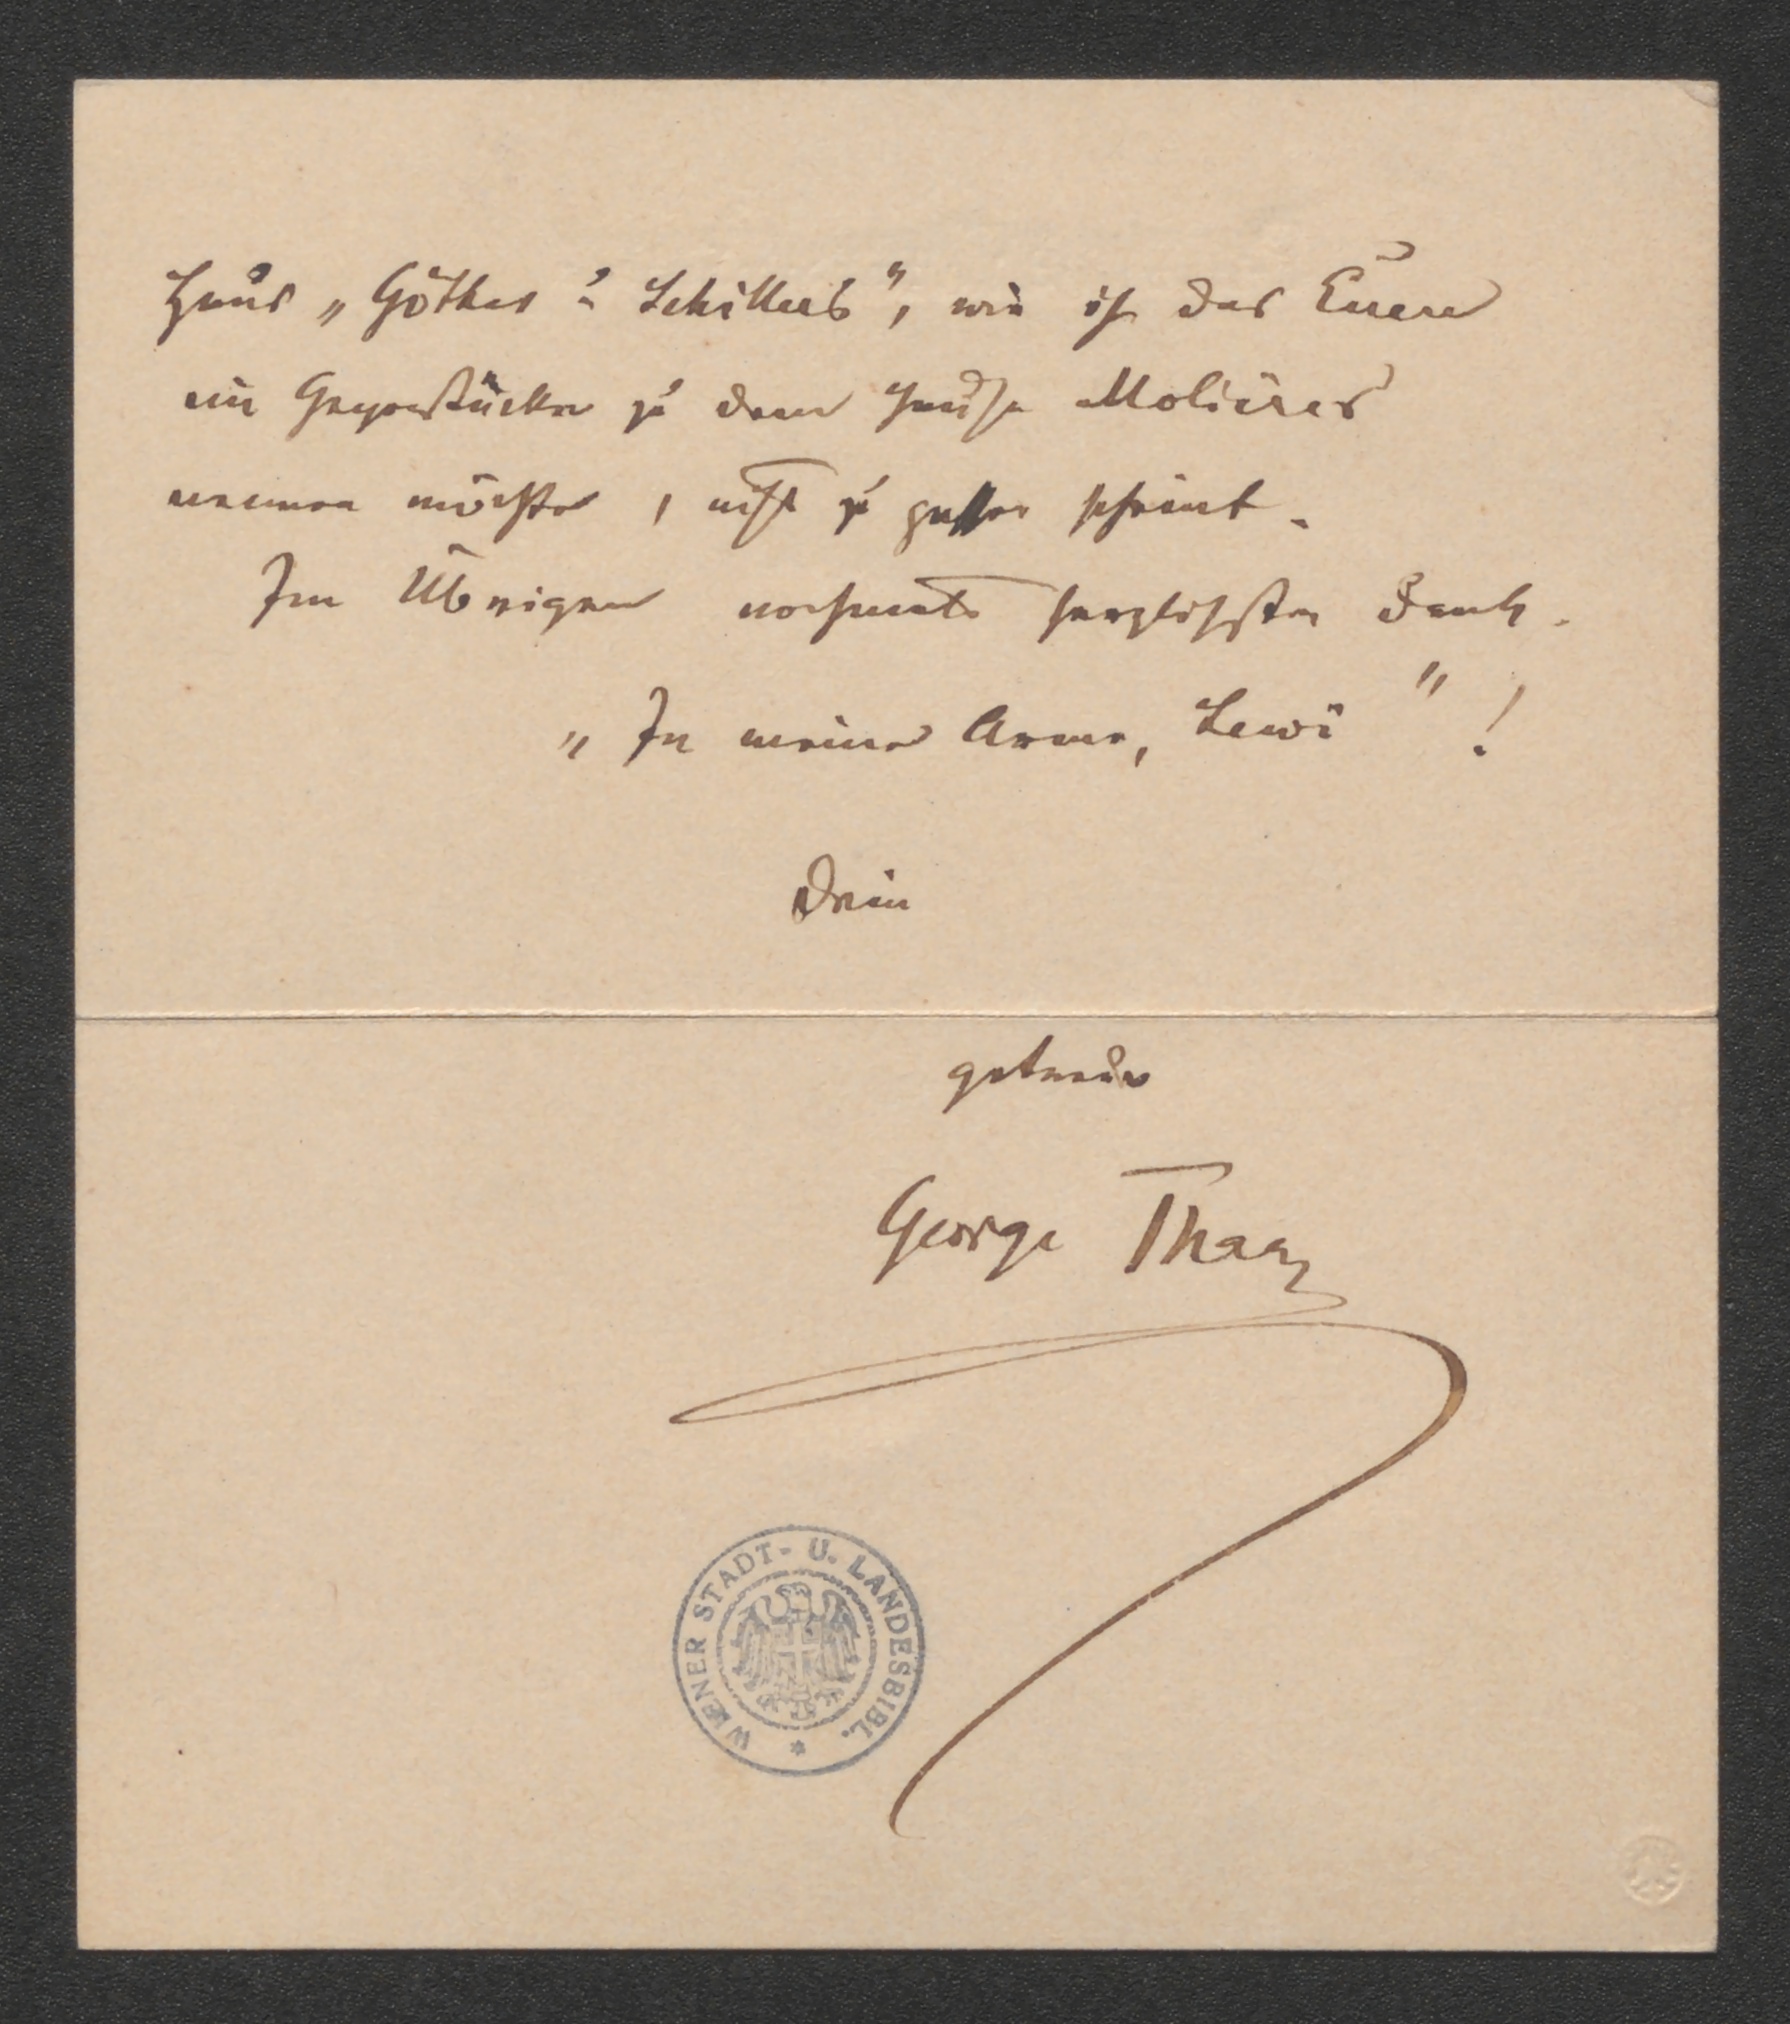 Haus „Göthes u Schillers", wie ich das Euere
im Gegenstücke zu dem Hause Molières
nennen möchte, nicht zu passen scheint.
Im Übrigen nochmals herzlichsten Dank.
„In meine Arme, Lewi"!
Dein
getreuer
George
WIENER STADT- U. LANDESBIBL.